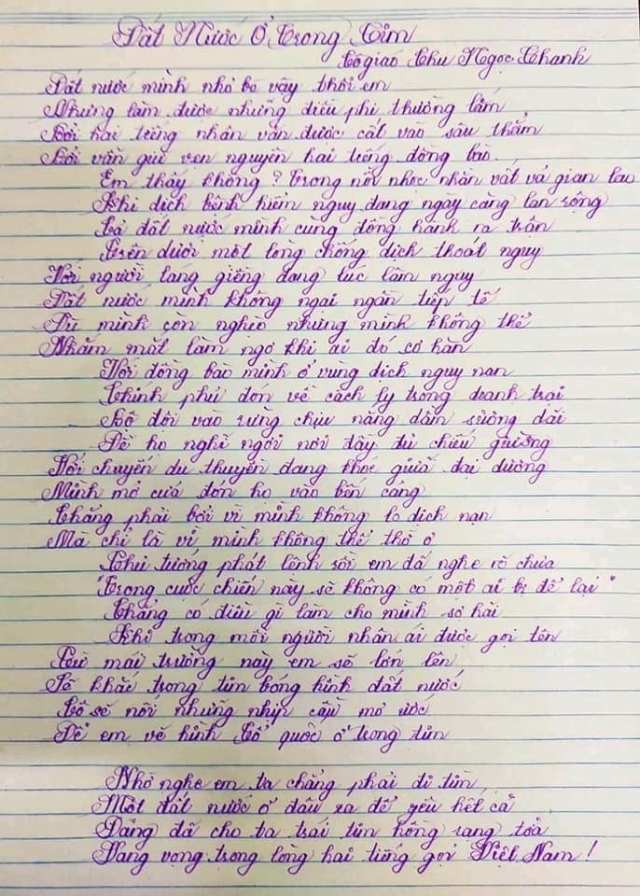 Đất Nước Ở Trong Tim
Cô giáo Chu Ngọc Thanh
Đất nước mình nhỏ bé vậy thôi em
Nhưng làm được những điều phi thường lắm
Bởi hai tiếng nhân văn được cất vào sâu thẳm
Bởi vẫn giữ vẹn nguyên hai tiếng đồng bào.
Em thấy không? Trong nỗi nhọc nhằn vất vả gian lao
Khi dịch bệnh hiểm nguy đang ngày càng lan rộng
Cả đất nước mình cùng đồng hành ra trận
Trên dưới một lòng chống dịch thoát nguy
Với người láng giềng đang lúc lâm nguy
Đất nước mình không ngại ngần tiếp tế
Dù mình còn nghèo nhưng mình không thể
Nhắm mắt làm ngơ khi ai đó cơ hàn
Với đồng bào mình ở vùng dịch nguy nan
Chính phủ đón về cách ly trong doanh trại
Bộ đội vào rừng chịu nắng dầm sương dãi
Để họ nghỉ ngơi nơi đầy đủ chiếu giường
Với chuyến du thuyền đang khóc giữa đại dương
Mình mở cửa đón họ vào bến cảng
Chẳng phải bởi vì mình không lo dịch nạn
Mà chỉ là vì mình không thể thờ ơ
Thủ tướng phát lệnh rồi em đã nghe rõ chưa
"Trong cuộc chiến này sẽ không có một ai bị để lại"
Chẳng có điều gì làm cho mình sợ hãi
Khi trong mỗi người nhân ái được gọi tên
Từ mái trường này em sẽ lớn lên
Sẽ khắc trong tim bóng hình đất nước
Cô sẽ nối những nhịp cầu mơ ước
Để em vẽ hình Tổ quốc ở trong tim
Nhớ nghe em, ta chẳng phải đi tìm
Một đất nước ở đâu xa để yêu hết cả
Đảng đã cho ta trái tim hồng rạng tỏa
Vang vọng trong lòng hai tiếng gọi Việt Nam!